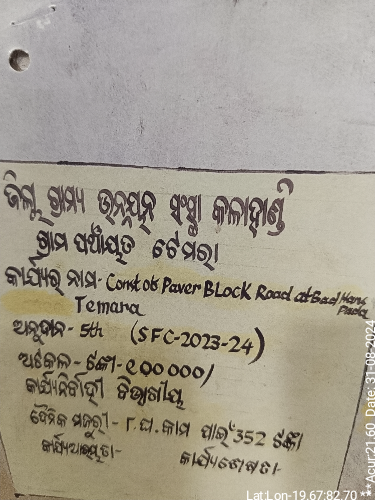 ଜିଲ୍ଲା ଗ୍ରାମ୍ୟ ଉନ୍ନୟନ ସଂସ୍ଥା କଳାହାଣ୍ଡି
ଗ୍ରାମ ପଞ୍ଚାୟତ ଟେମରା
କାର୍ଯ୍ୟର ନାମ- Const of Paver BLock Road at Bad
Temara
ଅନୁଦାନ - 5th (SFC-2023-24)
ଅଟକଳ - ଟଙ୍କା- ୧୦୦୦୦୦/
କାର୍ଯ୍ୟନିର୍ବାହୀ ବିଭାଗୀୟ
ଦୈନିକ ମଜୁରୀ - ୮.ଘ.କାମ ପାଇଁ 352 ଟଙ୍କା
କାର୍ଯ୍ୟଆରମ୍ଭତା- କାର୍ଯ୍ୟଶେଷତା-
Lat Lon-19.67:82.70 ***Acur:21.60 Date: 31-08-2024